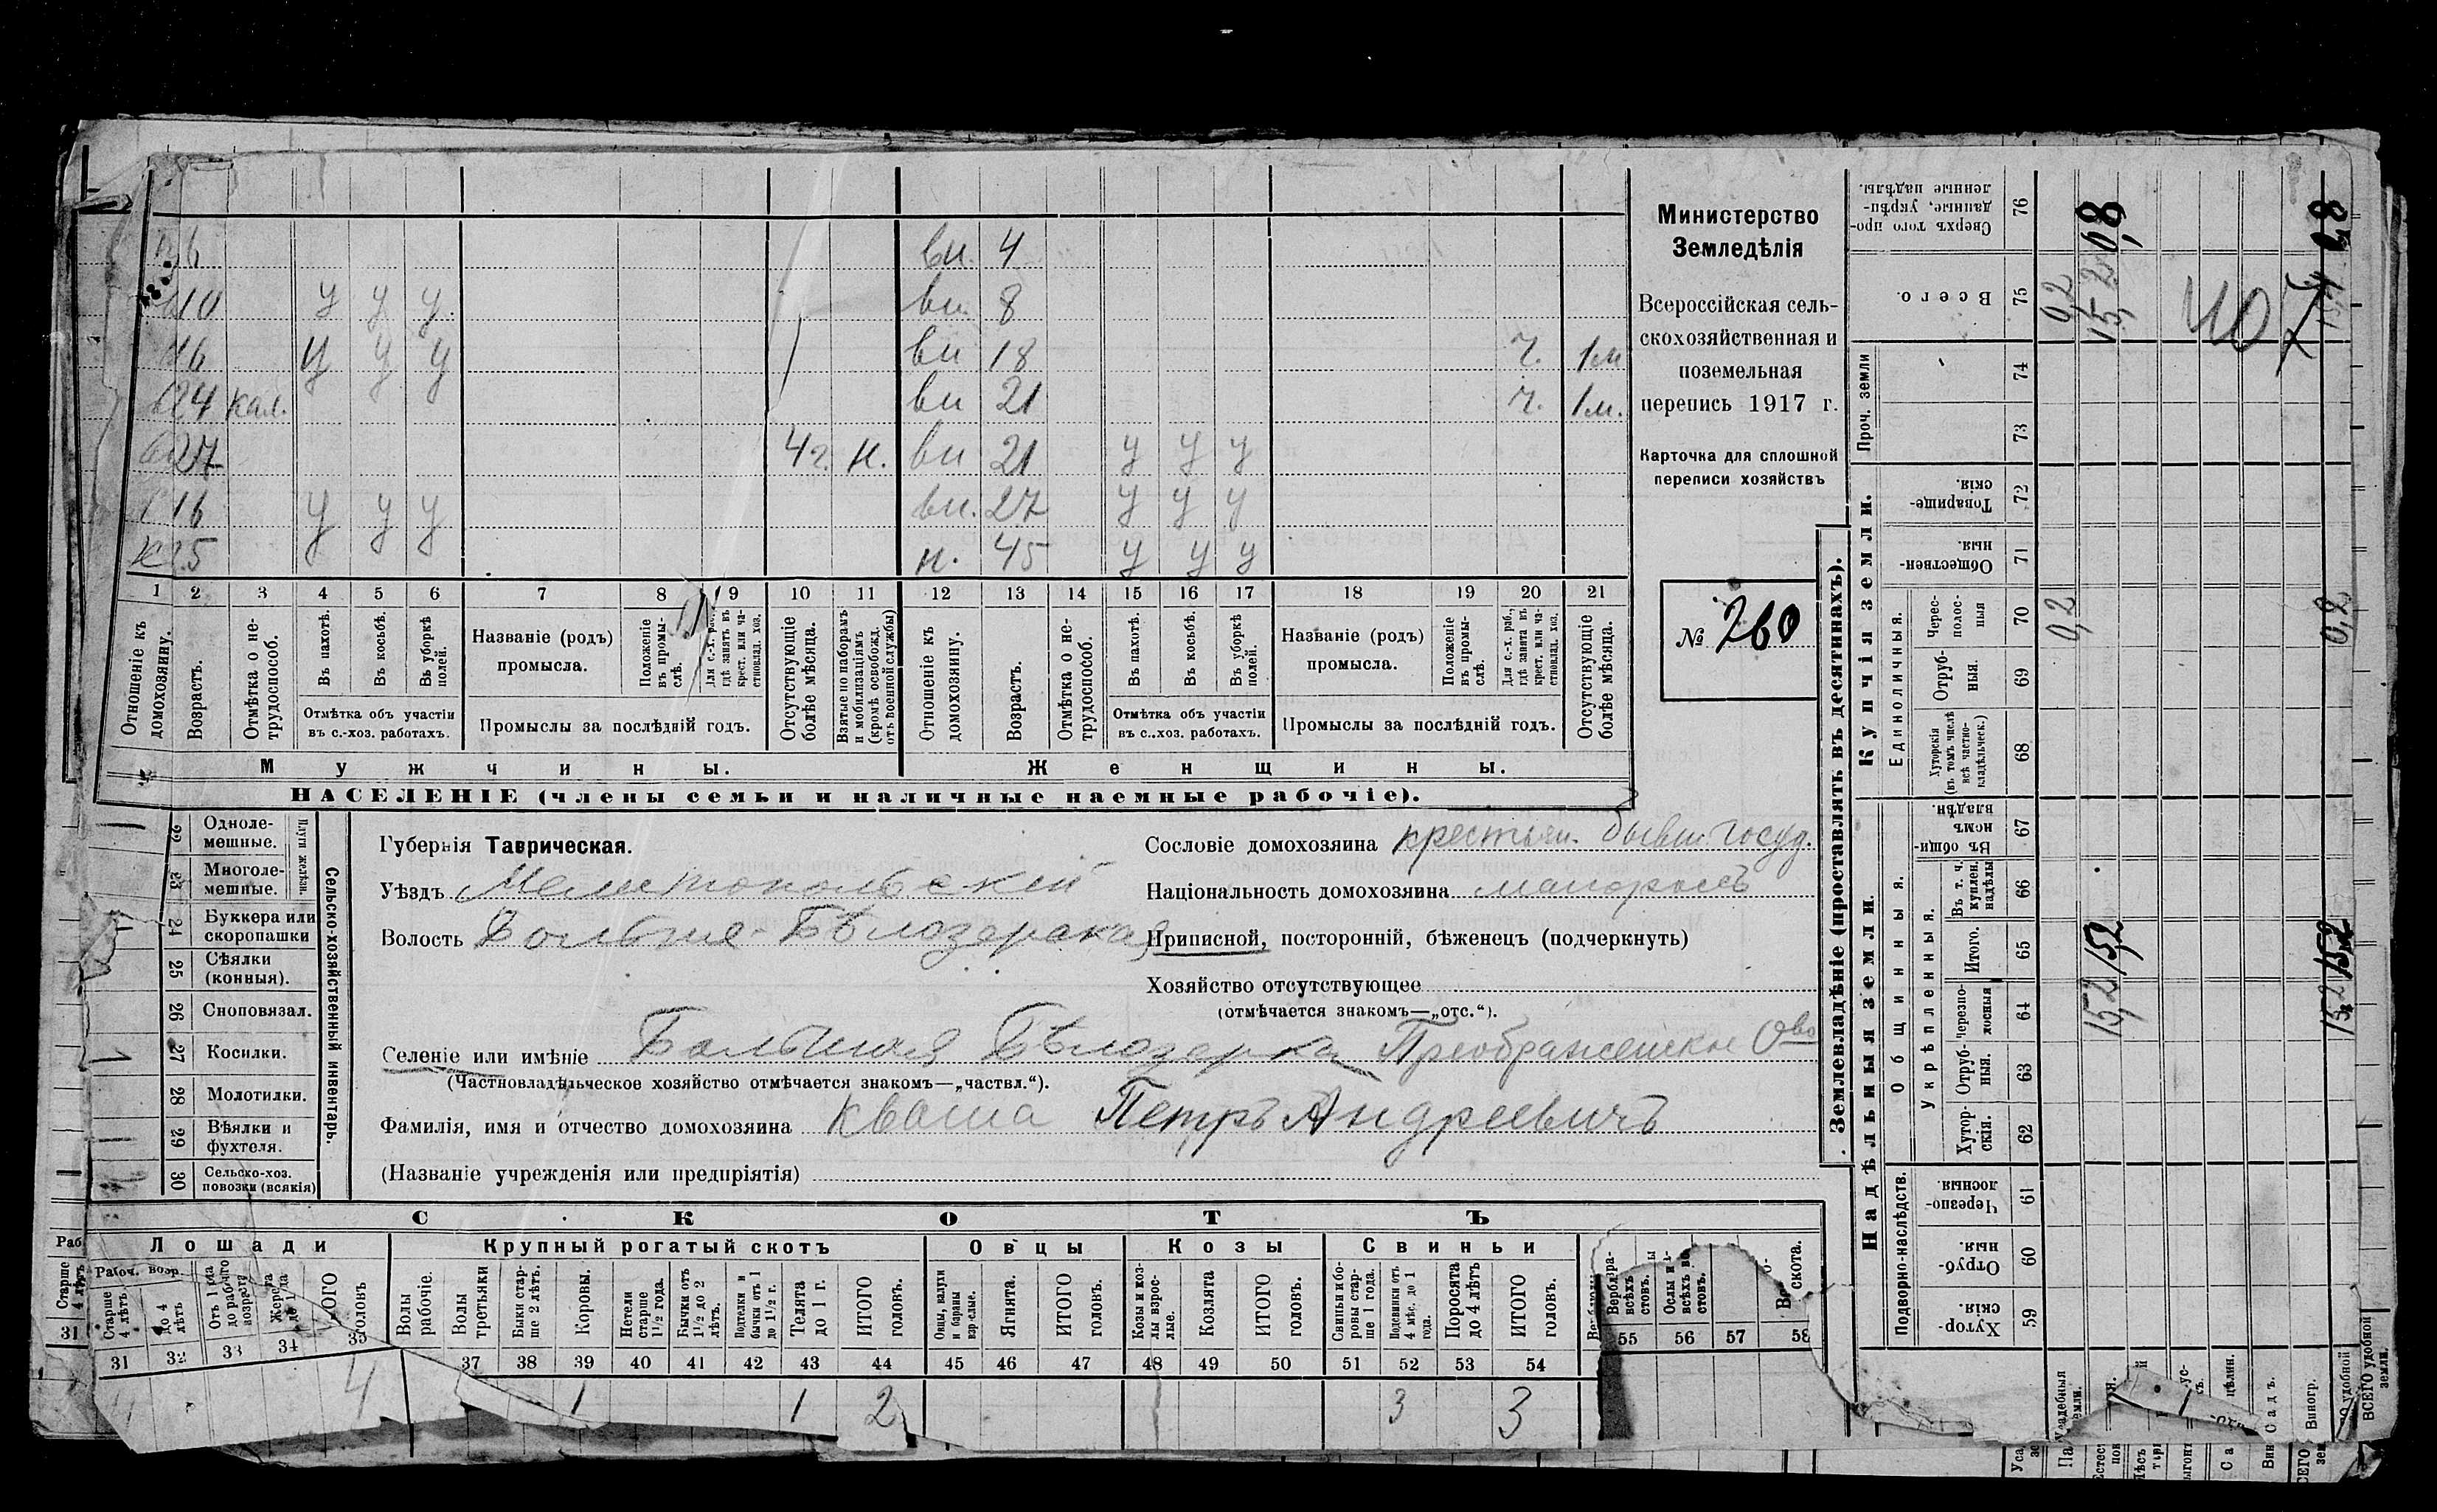 6 вн. 4
10 У У У. вн. 8
16 У У У вн 18 ч. 1м
24 кал. вн 21 ч. 1м.
27 4 г. н. вн 21 У У У
16 У У У вн. 27 У У У
н. 45 У У У
1 2 3 4 5 6 7 8 9 10 11 12 13 14 15 16 17 18 19 20 21
Отношеніе къ домохозяину.
Возрастъ.
Отмѣтка о нетрудоспособ.
Въ пахотѣ.
Въ косьбѣ.
Въ уборкѣ полей.
Отмѣтка объ участіи
въ с.-хоз. работахъ.
Названіе (родъ)
промысла.
Положеніе въ промыслѣ.
Для с.-х. раб., гдѣ занятъ въ крест. или частновлад. хоз.
Промыслы за послѣдній годъ.
Отсутствующіе болѣе мѣсяца.
Взятые по наборамъ и мобилизаціямъ (кромѣ освобожд. отъ военной службы)
Отношеніе къ домохозяину.
Возрастъ.
Отмѣтка о нетрудоспособ.
Въ пахотѣ.
Въ косьбѣ.
Въ уборкѣ полей.
Отмѣтка объ участіи
въ с.-хоз. работахъ.
Названіе (родъ)
промысла.
Положеніе въ промыслѣ.
Для с.-х. раб., гдѣ занята въ крест. или частновлад. хоз.
Промыслы за послѣдній годъ.
Отсутствующіе болѣе мѣсяца.
Мужчины. Женщины.
НАСЕЛЕНІЕ (члены семьи и наличные наемные рабочіе).
Министерство
Земледѣлія
Всероссійская сель-
скохозяйственная и
поземельная
перепись 1917 г.
Карточка для сплошной
переписи хозяйствъ
№ 760
Сельско-хозяйственный инвентарь.
Плуги желѣзн.
22 Одноле-
мешные.
23 Многоле-
мешные.
24 Буккера или
скоропашки
25 Сѣялки
(конныя).
26 Сноповязал.
27 Косилки.
28 Молотилки.
29 Вѣялки и
фухтеля.
30 Сельско-хоз.
повозки (всякія)
Губернія Таврическая.
Уѣздъ Мелитопольскій
Волость Больше-Бѣлозерская
Сословіе домохозяина крестьян. бывш. госуд.
Національность домохозяина малороссъ
Приписной, посторонній, бѣженецъ (подчеркнуть)
Хозяйство отсутствующее
(отмѣчается знакомъ—„отс.“).
Селеніе или имѣніе Большая Бѣлозерка Преображенское О-во
(Частновладѣльческое хозяйство отмѣчается знакомъ—„частвл.“).
Фамилія, имя и отчество домохозяина Кваша Петръ Андреевичъ
(Названіе учрежденія или предпріятія)
СКОТЪ
Лошади Крупный рогатый скотъ Овцы Козы Свиньи
Рабоч. возр.
Старше 4 лѣтъ.
До 4 лѣтъ
Отъ 1 года до рабочаго возраста
Волы рабочіе.
Волы третьяки
Быки старше 2 лѣтъ.
Коровы.
Нетели старше 1 1/2 года.
Бычки отъ 1 1/2 до 2 лѣтъ.
Подтелки и бычки отъ 1 до 1 1/2 г.
Телята до 1 г.
ИТОГО головъ.
Овцы, валухи и бараны взрослые.
Ягнята.
ИТОГО головъ.
Козы и козлы взрослые.
Козлята
ИТОГО головъ.
Свиньи и боровы старше 1 года.
Подсвинки отъ 4 мѣс. до 1 года.
Поросята до 4 лѣтъ
ИТОГО головъ.
31 32 33 34 35 37 38 39 40 41 42 43 44 45 46 47 48 49 50 51 52 53 54 55 56 57 58
4 1 1 2 3 3
Землевладѣніе (проставлять въ десятинахъ).
Купчія земли.
Надѣльныя земли.
Проч. земли
Единоличныя.
Общинныя.
Укрѣпленныя.
Подворно-наслѣдств.
76 Сверхъ того проданные, укрѣпленные надѣлы.
75 Всего.
74
73
72 Товарищескія.
71 Общественныя.
70 Черезполосныя
69 Отрубныя.
68 Хуторскія (въ томъ числѣ всѣ частновладѣльческ.)
67 Въ общинномъ владѣн.
66 Въ т. ч. куплен. надѣлы
65 Итого.
64 Черезполосныя
63 Отрубныя.
62 Хуторскія.
61 Черезполосныя.
60 Отрубныя.
59 Хуторскія.
0,8
0,2
15,2
40
0,2
0,2
15,2 15,2
15,2 15,2
Садъ.
Виногр.
ВСЕГО удобной земли.